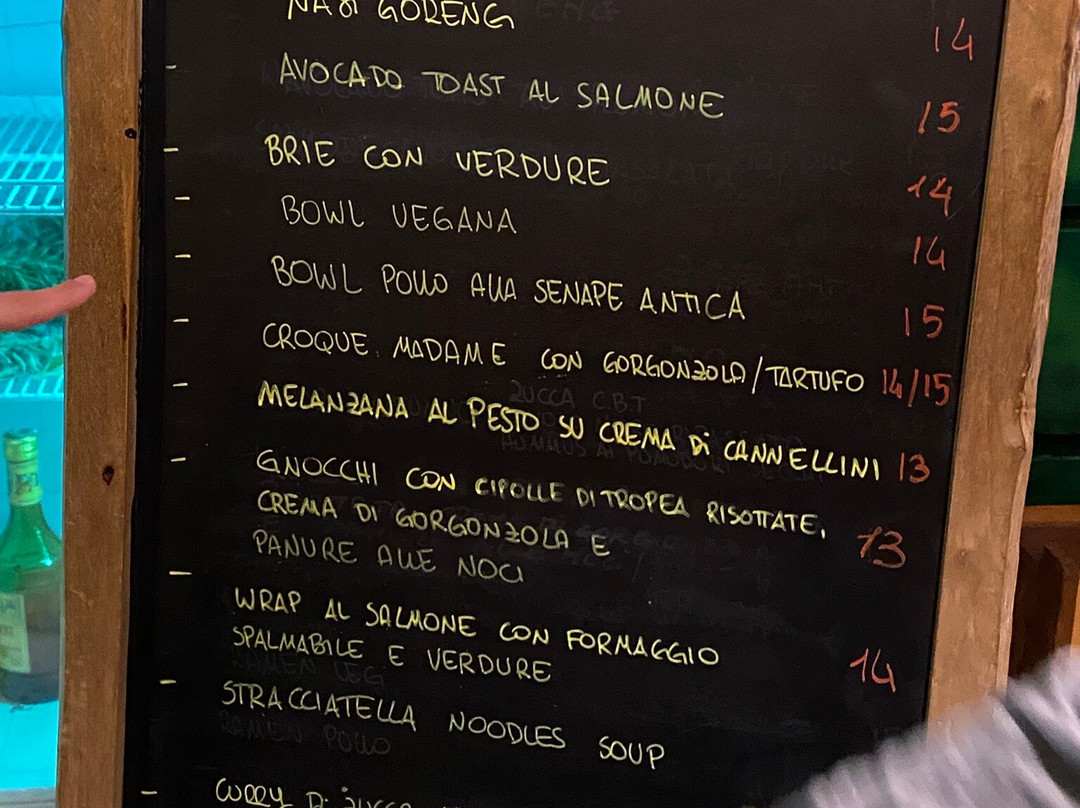 NASI GORENG 14
- AVOCADO TOAST AL SALMONE 15
- BRIE CON VERDURE 14
- BOWL VEGANA 14
- BOWL POLLO ALLA SENAPE ANTICA 15
- CROQUE MADAME CON GORGONZOLA/TARTUFO 14/15
- MELANZANA AL PESTO SU CREMA Di CANNELLINI 13
- GNOCCHI CON CIPOLLE DI TROPEA RISOTTATE,
CREMA DI GORGONZOLA E 13
PANURE ALLE NOCI
- WRAP AL SALMONE CON FORMAGGIO
SPALMABILE E VERDURE 14
- STRACCIATELLA NOODLES SOUP
- CURRY Di ZUCCA